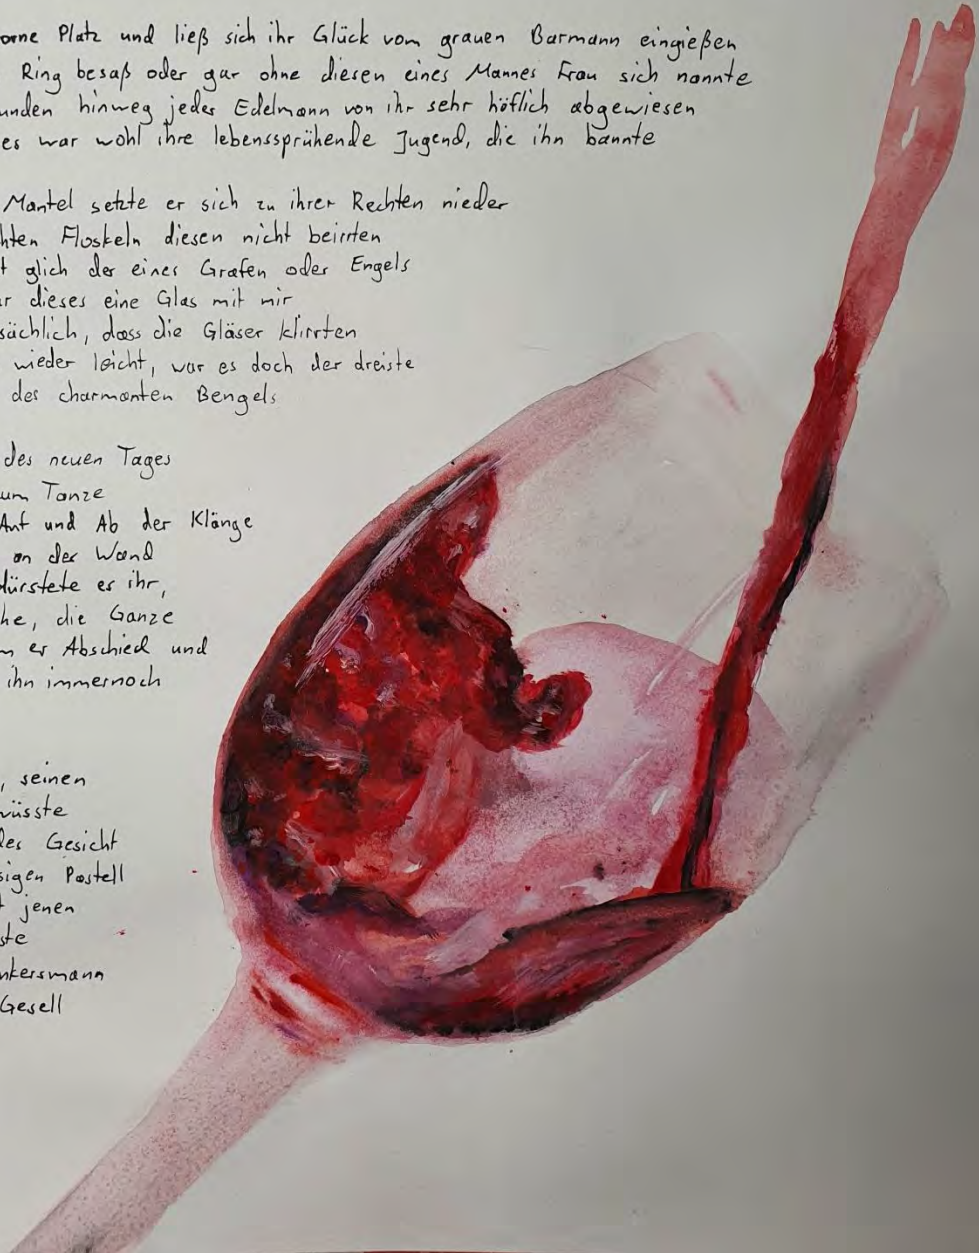 orne Platz und ließ sich ihr Glück vom grauen Barmann eingießen
Ring besaß oder gar ohne diesen eines Mannes Frau sich nannte
unden hinweg jeder Edelmann von ihr sehr höflich abgewiesen
es war wohl ihre lebenssprühende Jugend, die ihn bannte
Mantel setzte er sich zu ihrer Rechten nieder
hten Floskeln diesen nicht beirrten
t glich der eines Grafen oder Engels
r dieses eine Glas mit mir
sächlich, dass die Gläser klirrten
wieder leicht, war es doch der dreiste
des charmanten Bengels
des neuen Tages
um Tanze
Auf und Ab der Klänge
an der Wand
dürstete es ihr,
he, die Ganze
m er Abschied und
ihn immernoch
, seinen
wüsste
des Gesicht
sigen Pastell
t jenen
ste
nkersmann
Gesell